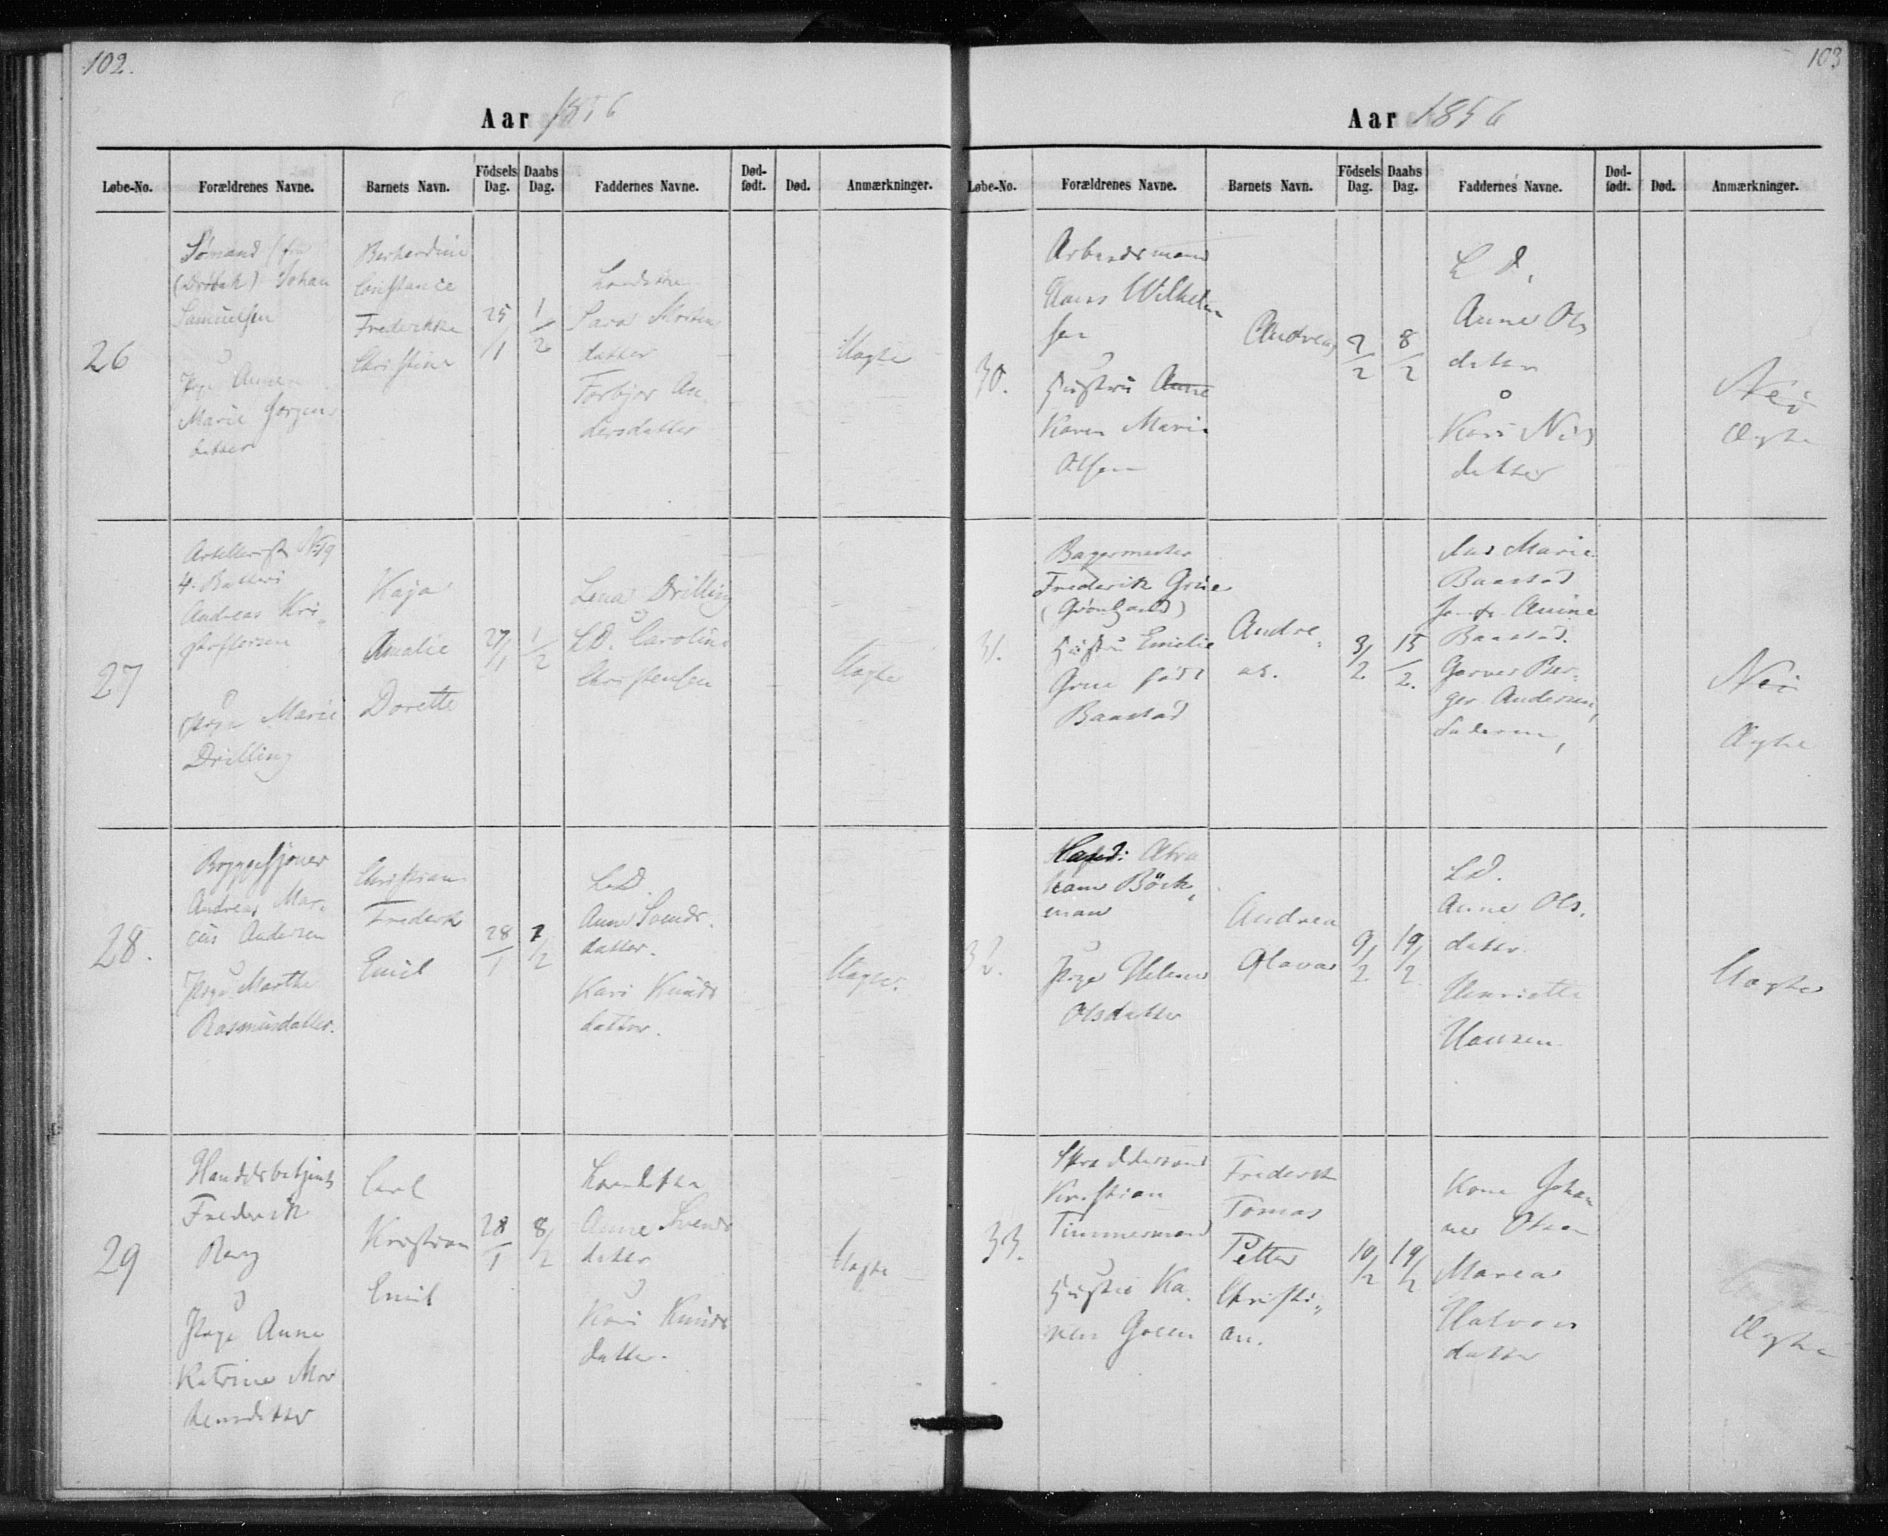 102.
Aar 1856
Løbe-No. Forældrenes Navne. Barnets Navn. Födsels Dag. Daabs Dag. Faddernes Navne. Död-födt. Død. Anmærkninger.
26
Sømand (fra
(Drøbak) Johan
Samuelsen
Pige Anne
Marie Jorgens
datter
Berhardine
Constance
Frederikke
Christine
25/1
1/2
Sara Morten
datter
Torbjor An
dersdatter
Uægte
27
Artillerist No 19
4. Batteri
Andreas Kri
stoffersen
Pige Marie
Drilling
Kaja
Amalie
Dorette
27/1
1/2
Lena Drilling
L.D. Caroline
Christensen
Uægte
28.
Andreas Mar
cus Andersen
Pige Marthe
Rasmusdatter.
Christian
Frederik
Emil
28/1
1/2
L.D.
Anne Svends
datter.
Kari Knuds
datter.
Uægte.
29
Handelsbetjent
Frederik
Berg
Pige Anne
Katrine Mor
tensdatter
Carl
Kristian
Emil
28/1
8/2
Anne Svends
datter
Kari Knuds
datter.
Uægte
103
Aar 1856
Løbe-No. Forældrenes Navne. Barnets Navn. Födsels Dag. Daabs Dag. Faddernes Navne. Död-födt. Død. Anmærkninger.
30.
Arbeidsmand
Hans Wilhelm
sen
Hustru Anne
Karen Marie
Olsen
Andreas
2/2
8/2
L D.
Anne Ols
datter
o
Kari Nils
datter
Nei
Ægte
31.
Bagermester
Frederik Grüe
(Grønland)
Hustru Emilie
Grue född
Baastad
Andre
as.
3/2
15/2.
Marie
Baastad
Anine
Baastad.
Garver Ber
ger Andersen,
Faderen,
Nei
Ægte
32.
Abra
ham Böck
man
Pige Helene
Olsdatter
Andrea
Olava
9/2
19/2.
L D.
Anne Ols.
datter.
Henriette
Hansen
Uægte
33.
Skræddersvend
Kristian
Timmermand
Hustru Ka
Frederik
Tomas
Petter
Christi
an.
10/2
19/2
Kone Johan
ne Olsen
Maren
Halvors
datter
Ægte